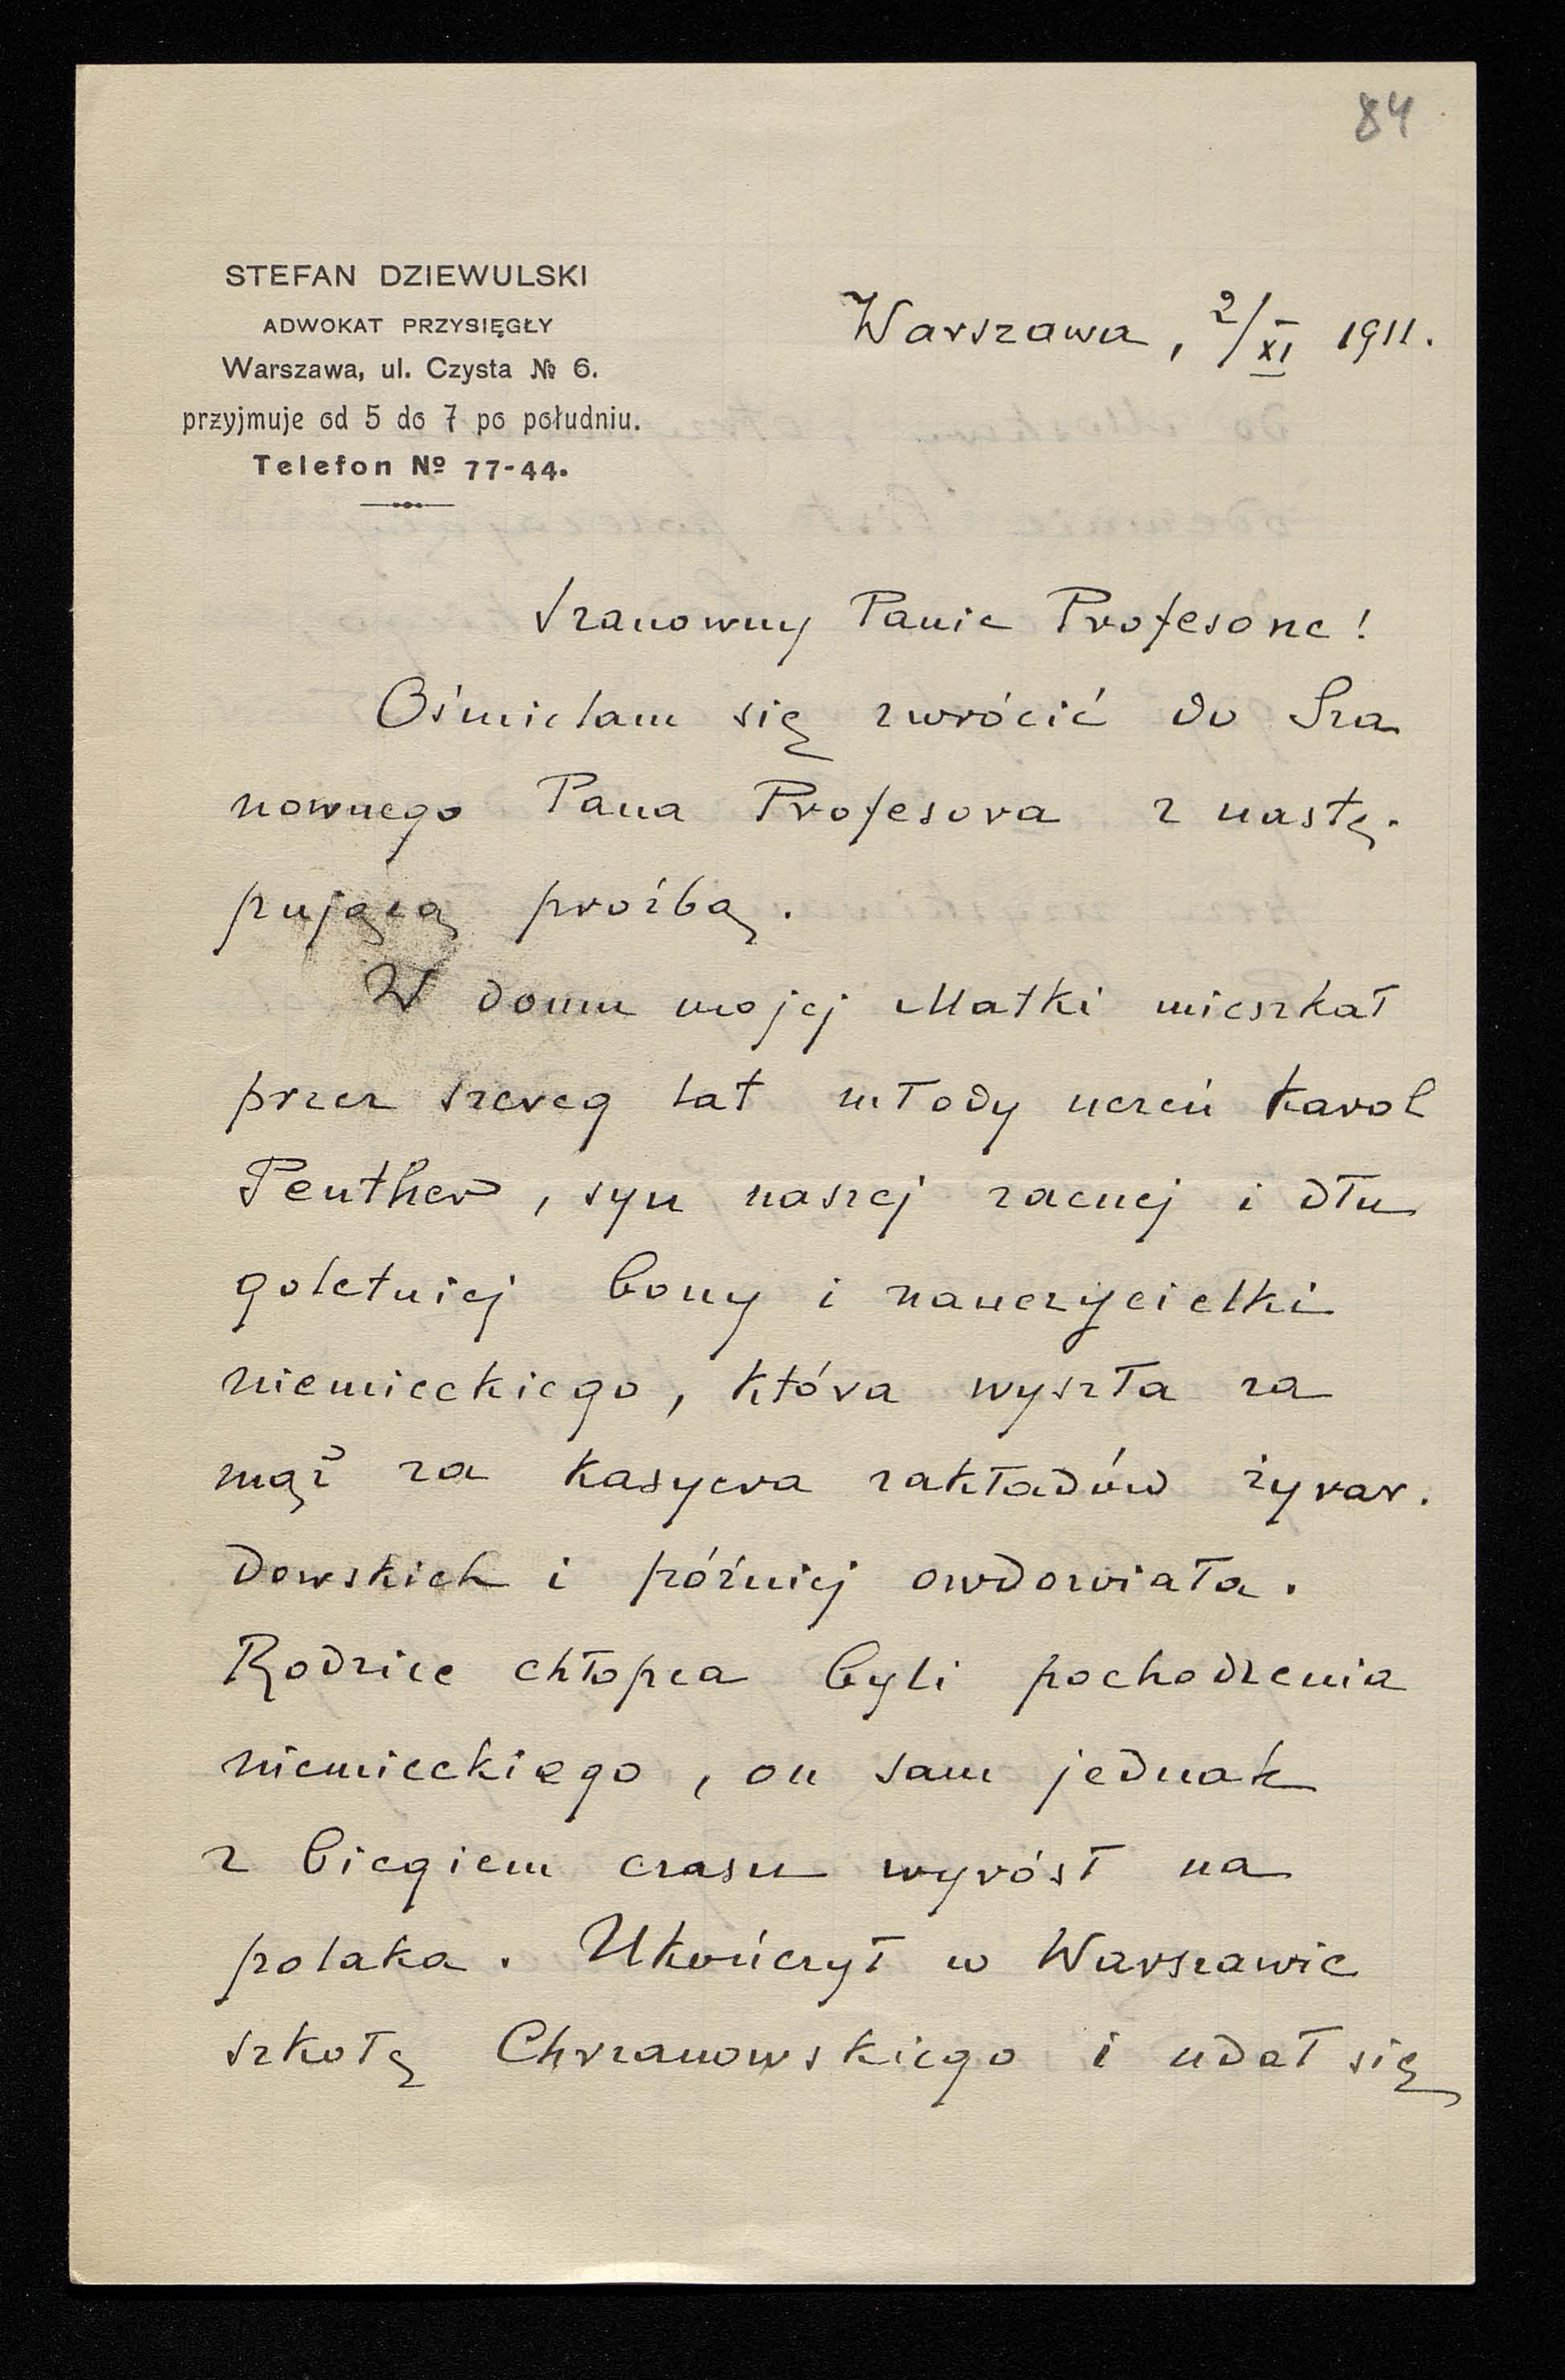 84
STEFAN DZIEWULSKI
ADWOKAT PRZYSIĘGŁY
Warszawa, ul. Czysta № 6.
przyjmuje od 5 do 7 po południu.
Telefon № 77-44.
Warszawa, 2/XI 1911.
Szanowny Panie Profesorze!
Ośmielam się zwrócić do Sza
nownego Pana Profesora z nastę-
pującą prośbą.
W domu mojej Matki mieszkał
przez szereg lat młody uczeń Karol
Peuther, syn naszej zacnej i dłu
goletniej bony i nauczycielki
niemieckiego, która wyszła za
mąż za kasyera zakładów żyrar-
dowskich i później owdowiała.
Rodzice chłopca byli pochodzenia
niemieckiego, on sam jednak
z biegiem czasu wyróst na
polaka. Ukończył w Warszawie
szkołę Chrzanowskiego i udał się